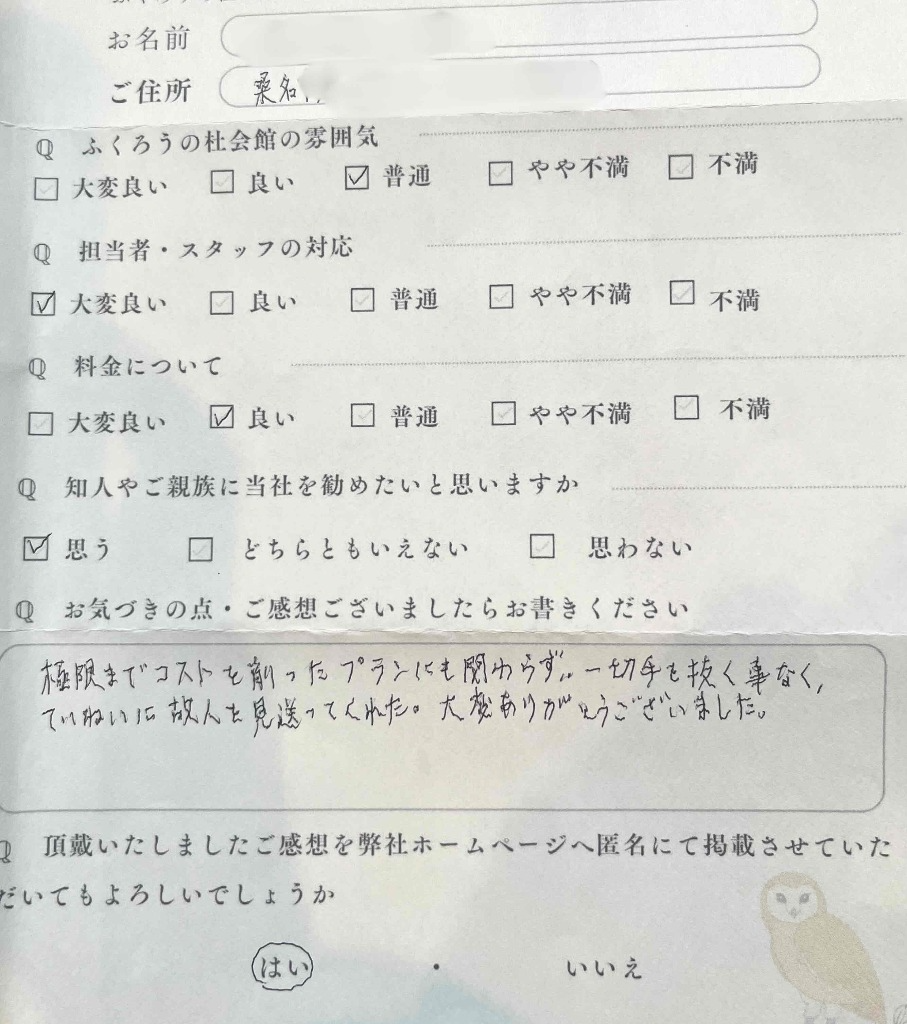 お名前
ご住所 桑名
Q ふくろうの杜会館の雰囲気
大変良い 良い 普通 やや不満 不満
Q 担当者・スタッフの対応
大変良い 良い 普通 やや不満 不満
Q 料金について
大変良い 良い 普通 やや不満 不満
Q 知人やご親族に当社を勧めたいと思いますか
思う どちらともいえない 思わない
Q お気づきの点・ご感想ございましたらお書きください
極限までコストを削ったプランにも関わらず、一切手を抜く事なく、
ていねいに故人を見送ってくれた。大変ありがとうございました。
Q 頂戴いたしましたご感想を弊社ホームページへ匿名にて掲載させていた
だいてもよろしいでしょうか
はい ・ いいえ